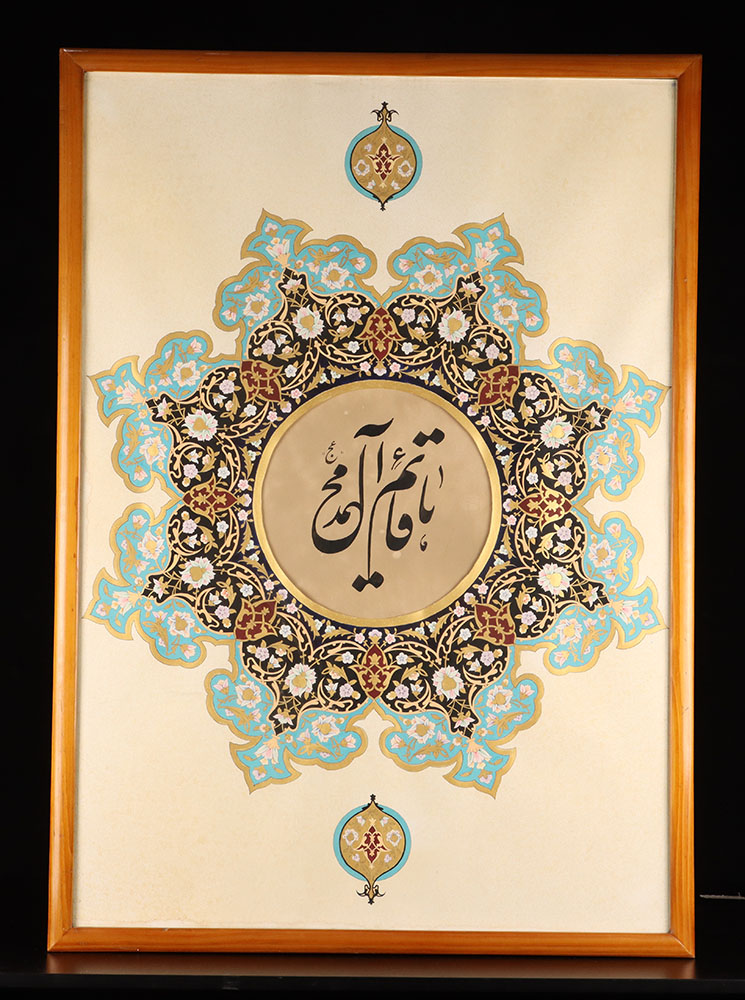 یا قائم آل محمد عج